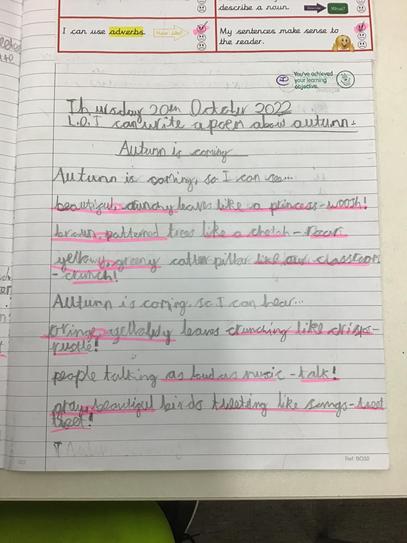 describe a noun.
I can use adverbs.
My sentences make sense to
the reader.
You've achieved
your learning
objective.
Thursday 20th October 2022
L.O.I can write a poem about autumn.
Autumn is coming
Autumn is coming, so I can see...
beautiful, crunchy leaves like a princess-woosh!
brown, patterned trees like a cheetah - roar
yellow, greeny catterpillar like our classroom
- crunch!
Autumn is coming, so I can hear...
leaves crunching like crisps-
rustle!
people talking as loud as music - talk!
beautiful birds tweeting like songs-tweet
tweet!